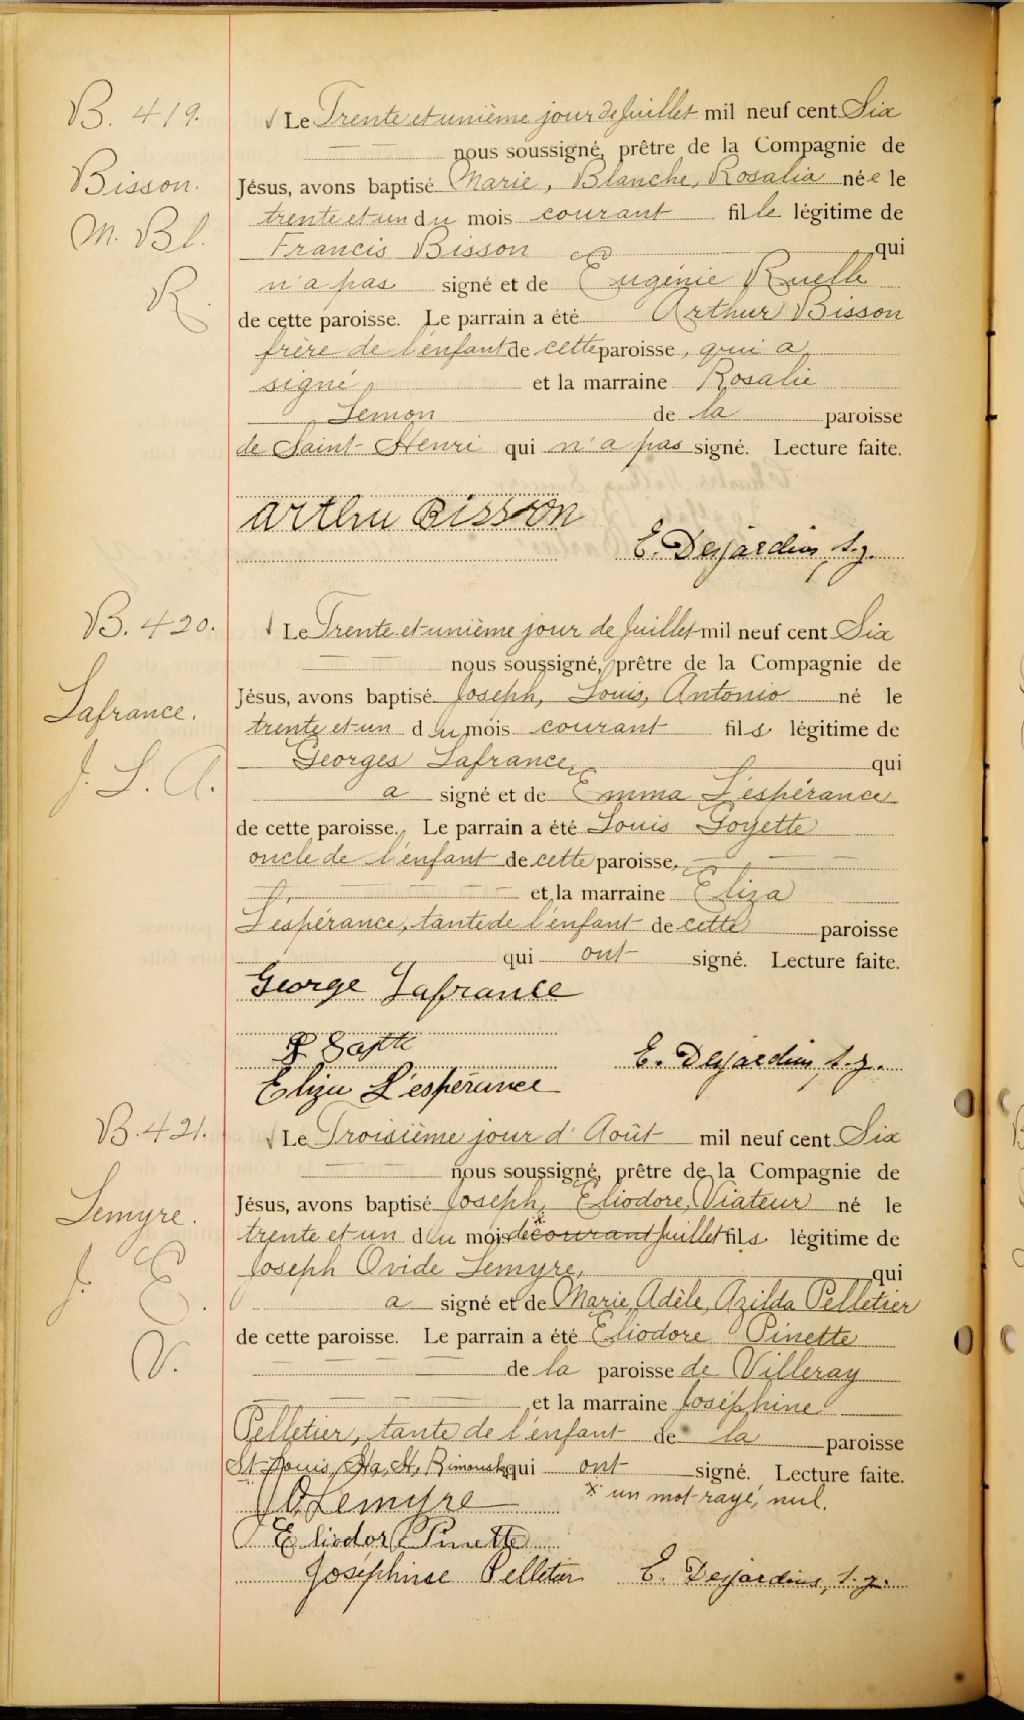 B. 419.
Bisson.
M. Bl.
R.
Le Trente et unième jour de Juillet mil neuf cent Six
nous soussigné, prêtre de la Compagnie de
Jésus, avons baptisé Marie, Blanche, Rosalia née le
trente et un du mois courant fille légitime de
Francis Bisson qui
n'a pas signé et de Eugénie Ruelle
de cette paroisse. Le parrain a été Arthur Bisson
frère de l'enfant de cette paroisse, qui a
signé, et la marraine Rosalie
Lemon de la paroisse
de Saint-Henri qui n'a pas signé. Lecture faite.
Arthu Bisson
E. Desjardins, s.j.
B. 420.
Lafrance.
J. L. A.
Le Trente et unième jour de Juillet mil neuf cent Six
nous soussigné, prêtre de la Compagnie de
Jésus, avons baptisé Joseph, Louis, Antonio né le
trente et un du mois courant fils légitime de
Georges Lafrance, qui
a signé et de Emma L'espérance
de cette paroisse. Le parrain a été Louis Goyette
oncle de l'enfant de cette paroisse,
et la marraine Eliza
L'espérance, tante de l'enfant de cette paroisse
qui ont signé. Lecture faite.
George Lafrance
E. Desjardins, s.j.
Eliza L'espérance
B. 421.
Lemyre.
J. E.
V.
Le Troisième jour d'Août mil neuf cent Six
nous soussigné, prêtre de la Compagnie de
Jésus, avons baptisé Joseph, Eliodore, Viateur né le
trente et un du mois de courant Juillet fils légitime de
Joseph Ovide Lemyre, qui
a signé et de Marie, Adèle, Azilda Pelletier
de cette paroisse. Le parrain a été Eliodore Pinette
de la paroisse de Villeray
et la marraine Joséphine
Pelletier, tante de l'enfant de la paroisse
St-Louis, Ha, H, Rimouski qui ont signé. Lecture faite.
* un mot rayé, nul.
J O Lemyre
Eliodor Pinette
Joséphine Pelletier E. Desjardins, s.j.